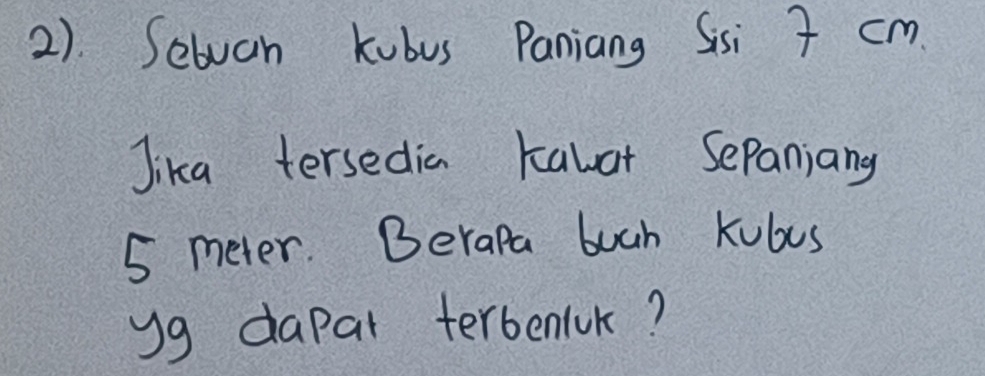 2). Sebuah kubus Panjang Sisi 7 cm.
Jika tersedia kawat Sepanjang
5 meter. Berapa buah kubus
yg dapat terbentuk?